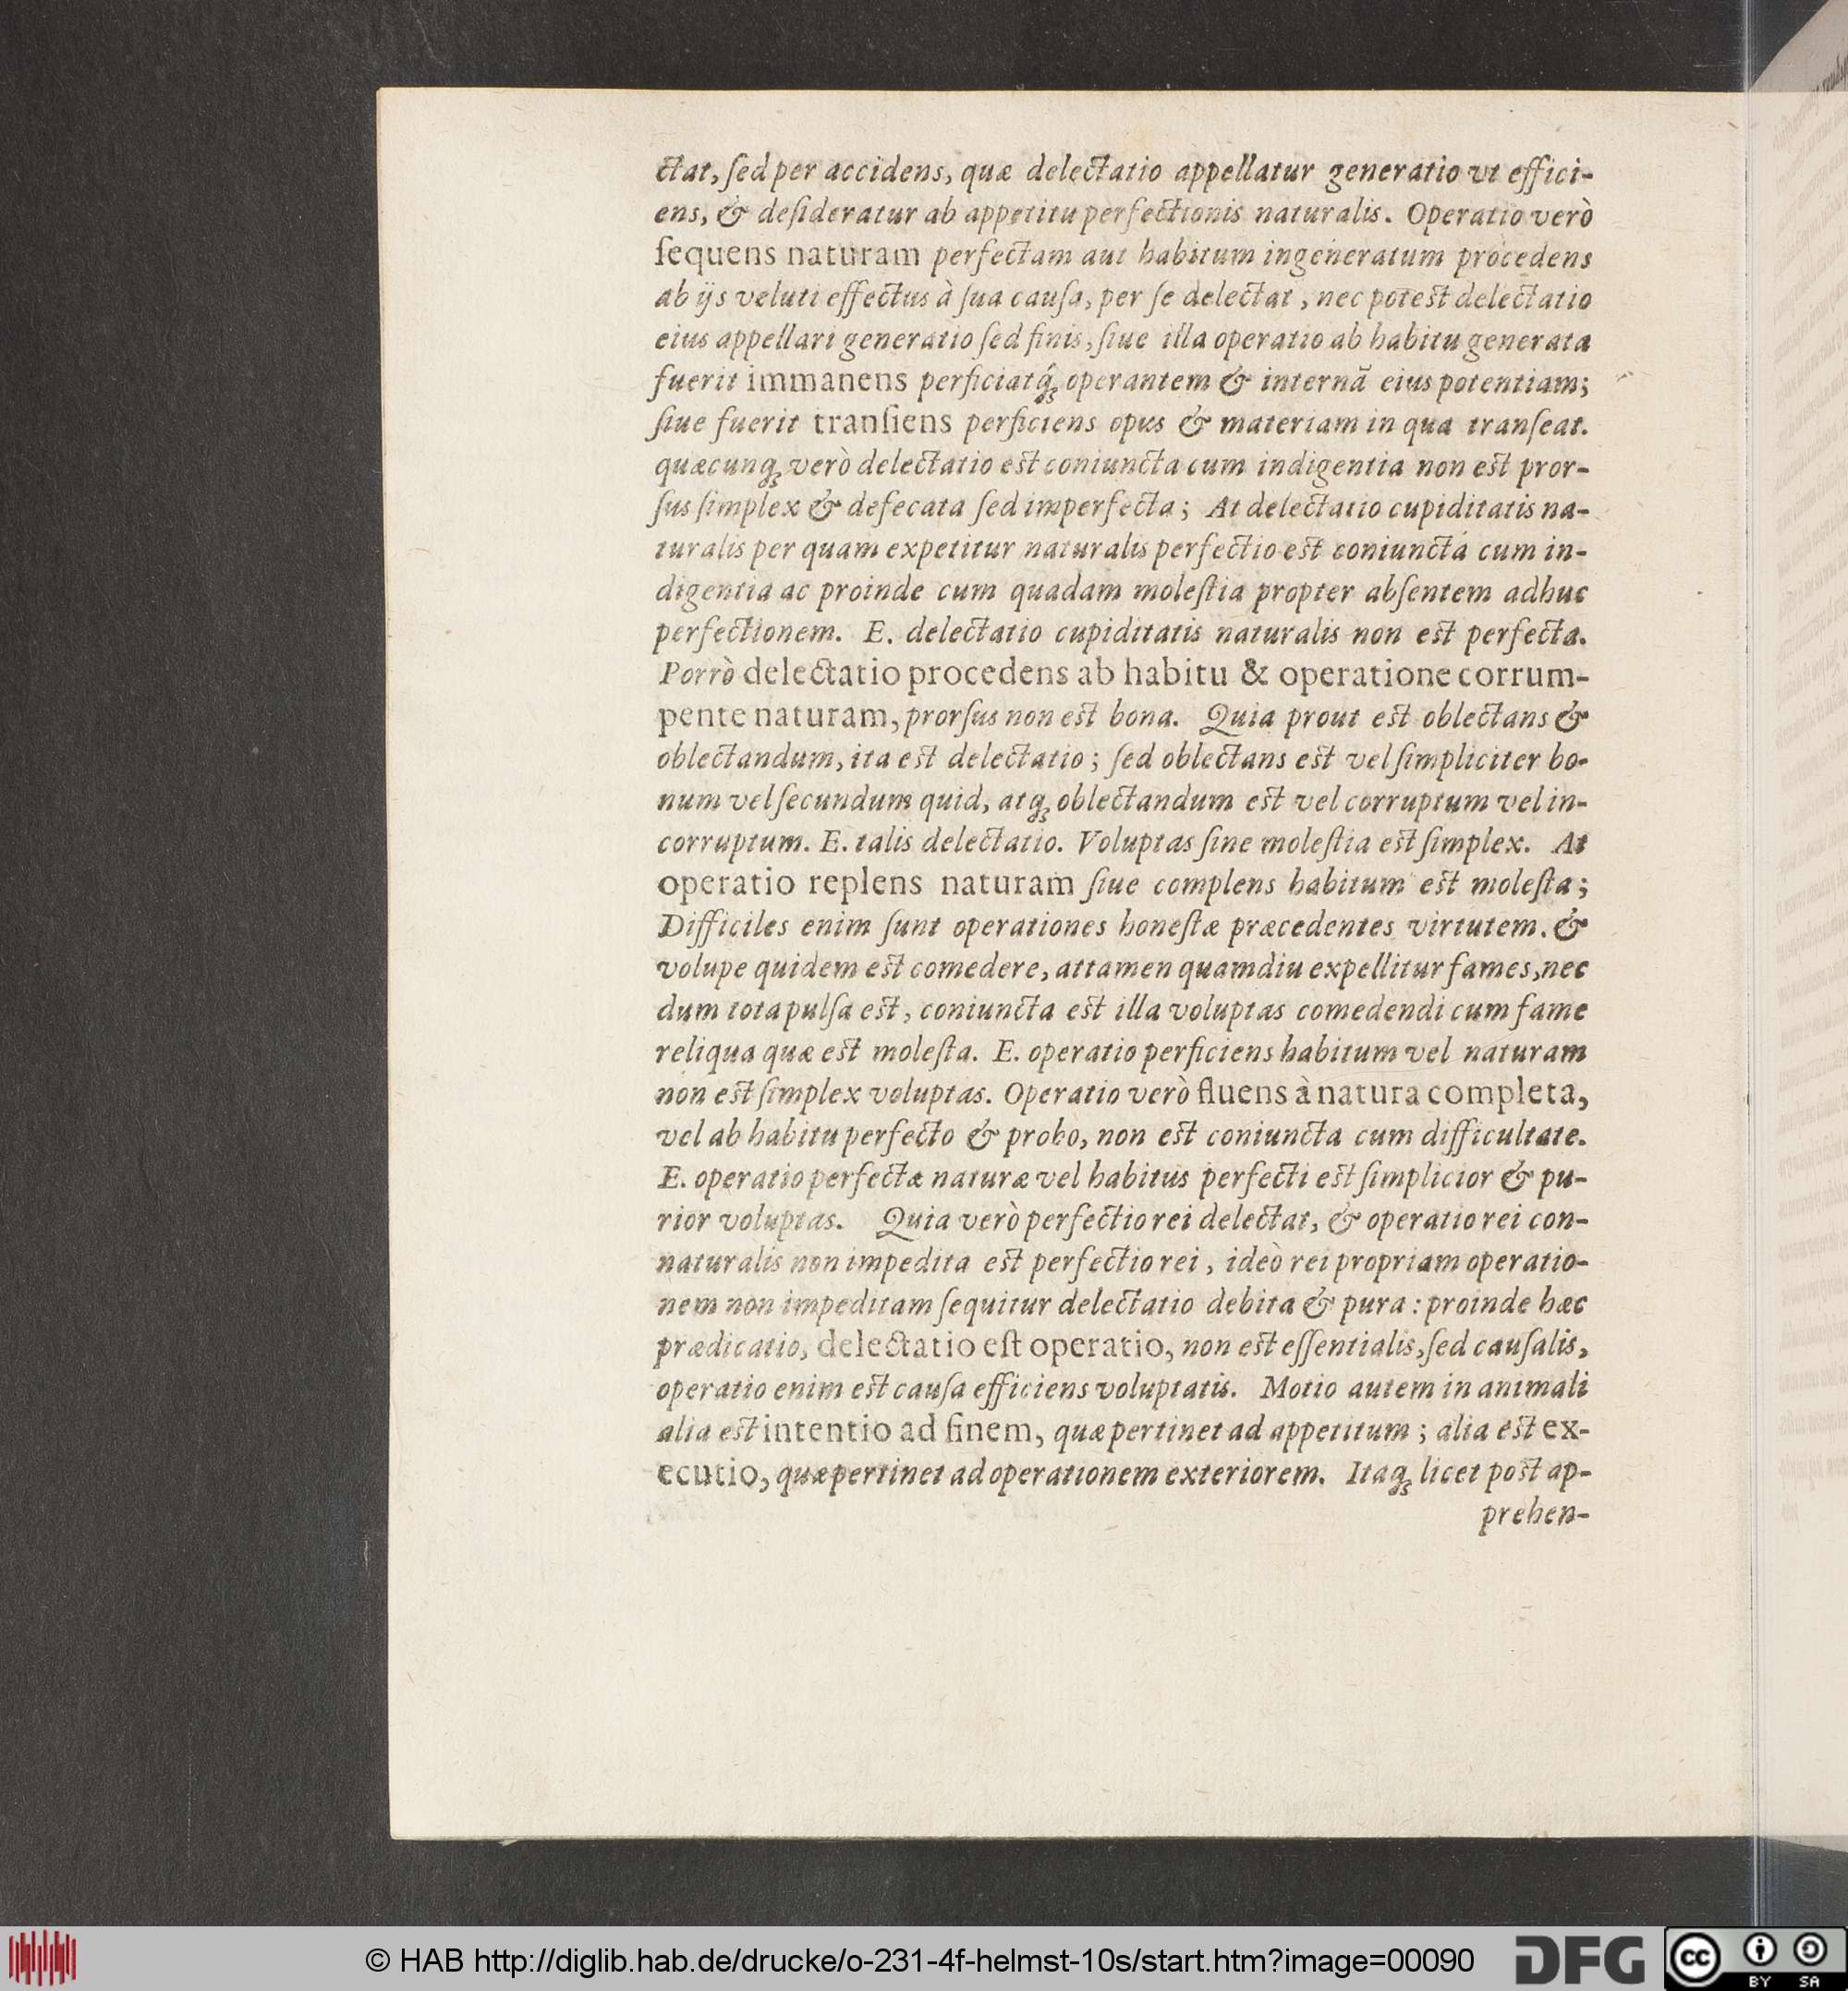 ctat, ſed per accidens, quæ delectatio appellatur generatio vt effici-
ens, & deſideratur ab appetitu perfectionis naturalis. Operatio verò
ſequens naturam perfectam aut habitum ingeneratum procedens
ab ijs veluti effectus à ſua cauſa, per ſe delectat, nec poteſt delectatio
eius appellari generatio ſed finis, ſiue illa operatio ab habitu generata
fuerit immanens perficiatq́ꝫ operantem & internã eius potentiam;
ſiue fuerit tranſiens perficiens opus & materiam in qua tranſeat.
quæcunqꝫ verò delectatio eſt coniuncta cum indigentia non eſt pror-
ſus ſimplex & defecata ſed imperfecta; At delectatio cupiditatis na-
turalis per quam expetitur naturalis perfectio eſt coniuncta cum in-
digentia ac proinde cum quadam moleſtia propter abſentem adhuc
perfectionem. E. delectatio cupiditatis naturalis non eſt perfecta.
Porrò delectatio procedens ab habitu & operatione corrum-
pente naturam, prorſus non eſt bona. Quia prout eſt oblectans &
oblectandum, ita eſt delectatio; ſed oblectans eſt vel ſimpliciter bo-
num vel ſecundum quid, atqꝫ oblectandum eſt vel corruptum vel in-
corruptum. E. talis delectatio. Voluptas ſine moleſtia eſt ſimplex. At
operatio replens naturam ſiue complens habitum eſt moleſta;
Difficiles enim ſunt operationes honeſtæ præcedentes virtutem. &
volupe quidem eſt comedere, attamen quamdiu expellitur fames, nec
dum tota pulſa eſt, coniuncta eſt illa voluptas comedendi cum fame
reliqua quæ eſt moleſta. E. operatio perficiens habitum vel naturam
non eſt ſimplex voluptas. Operatio verò fluens à natura completa,
vel ab habitu perfecto & probo, non eſt coniuncta cum difficultate.
E. operatio perfectæ naturæ vel habitus perfecti eſt ſimplicior & pu-
rior voluptas. Quia verò perfectio rei delectat, & operatio rei con-
naturalis non impedita eſt perfectio rei, ideò rei propriam operatio-
nem non impeditam ſequitur delectatio debita & pura: proinde hæc
prædicatio, delectatio eſt operatio, non eſt eſſentialis, ſed cauſalis,
operatio enim eſt cauſa efficiens voluptatis. Motio autem in animali
alia eſt intentio ad finem, quæ pertinet ad appetitum; alia eſt ex-
ecutio, quæ pertinet ad operationem exteriorem. Itaqꝫ licet poſt ap-
prehen-
© HAB http://diglib.hab.de/drucke/o-231-4f-helmst-10s/start.htm?image=00090
DFG
cc BY SA